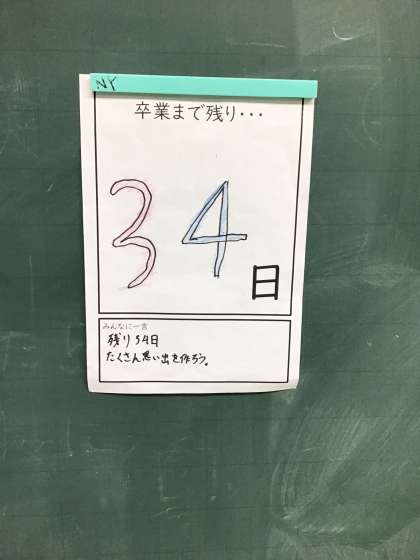 NY
卒業まで残り・・・
34
日
みんなに一言
残り34日
たくさん思い出を作ろう。